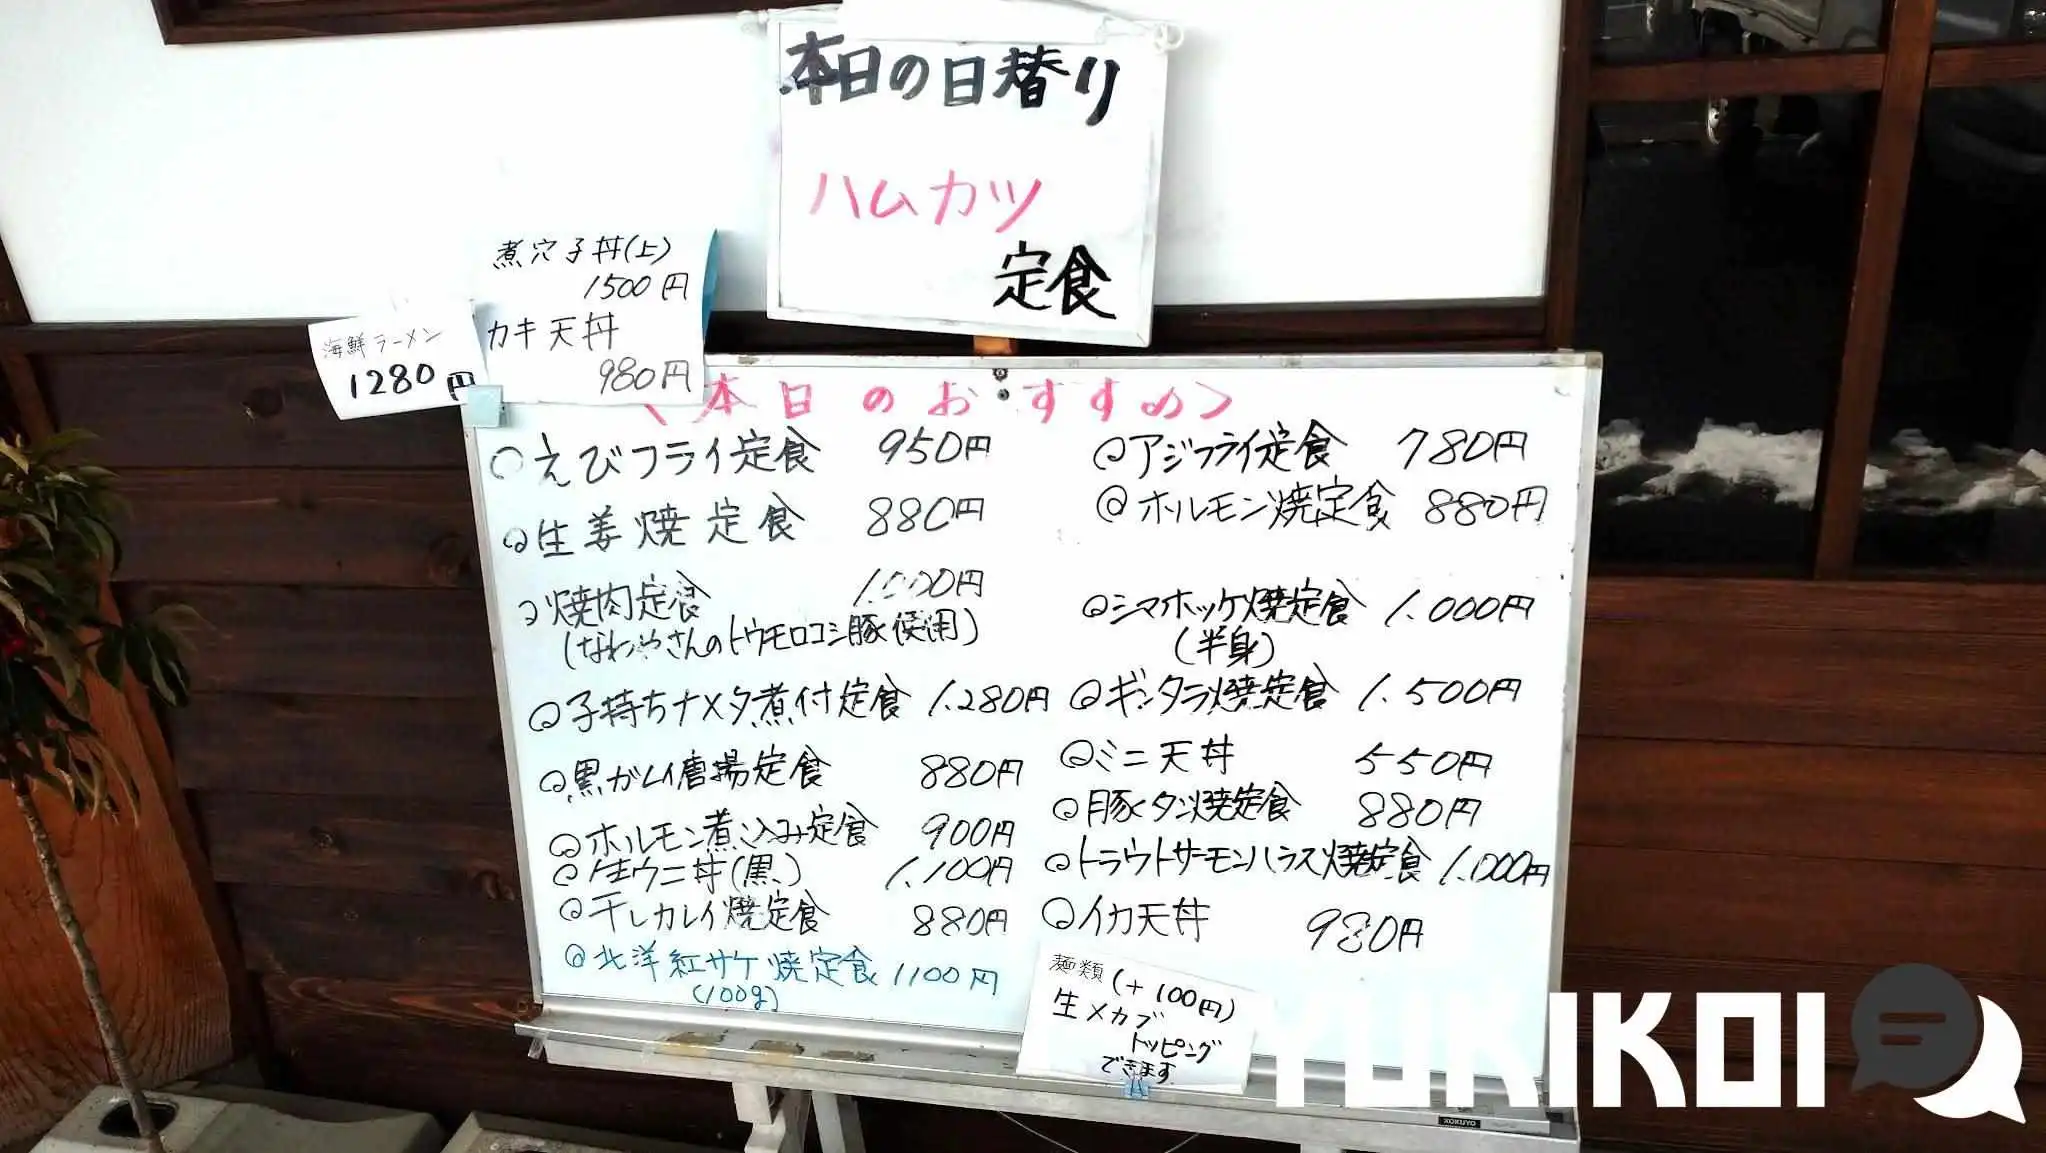 本日の日替り
ハムカツ
定食
煮穴子丼(上)
1500円
カキ天丼
980円
海鮮ラーメン
1280円
<本日のおすすめ>
○えびフライ定食 950円
◎生姜焼定食 880円
◎焼肉定食 1.000円
(なわやさんのトウモロコシ豚使用)
◎子持ちナメタ煮付定食 1.280円
◎黒ガレイ唐揚定食 880円
◎ホルモン煮込み定食 900円
◎生ウニ丼(黒) 1.100円
◎干しカレイ焼定食 880円
◎北洋紅サケ焼定食 1100円
(100g)
◎アジフライ定食 780円
◎ホルモン焼定食 880円
◎シマホッケ焼定食 1.000円
(半身)
◎ギンダラ焼定食 1.500円
◎ミニ天丼 550円
◎豚タン焼定食 880円
◎トラウトサーモンハラス焼定食 1.000円
◎イカ天丼 980円
麺類(+100円)
生メカブ
トッピング
できます
KOKUYO
YUKIKOI